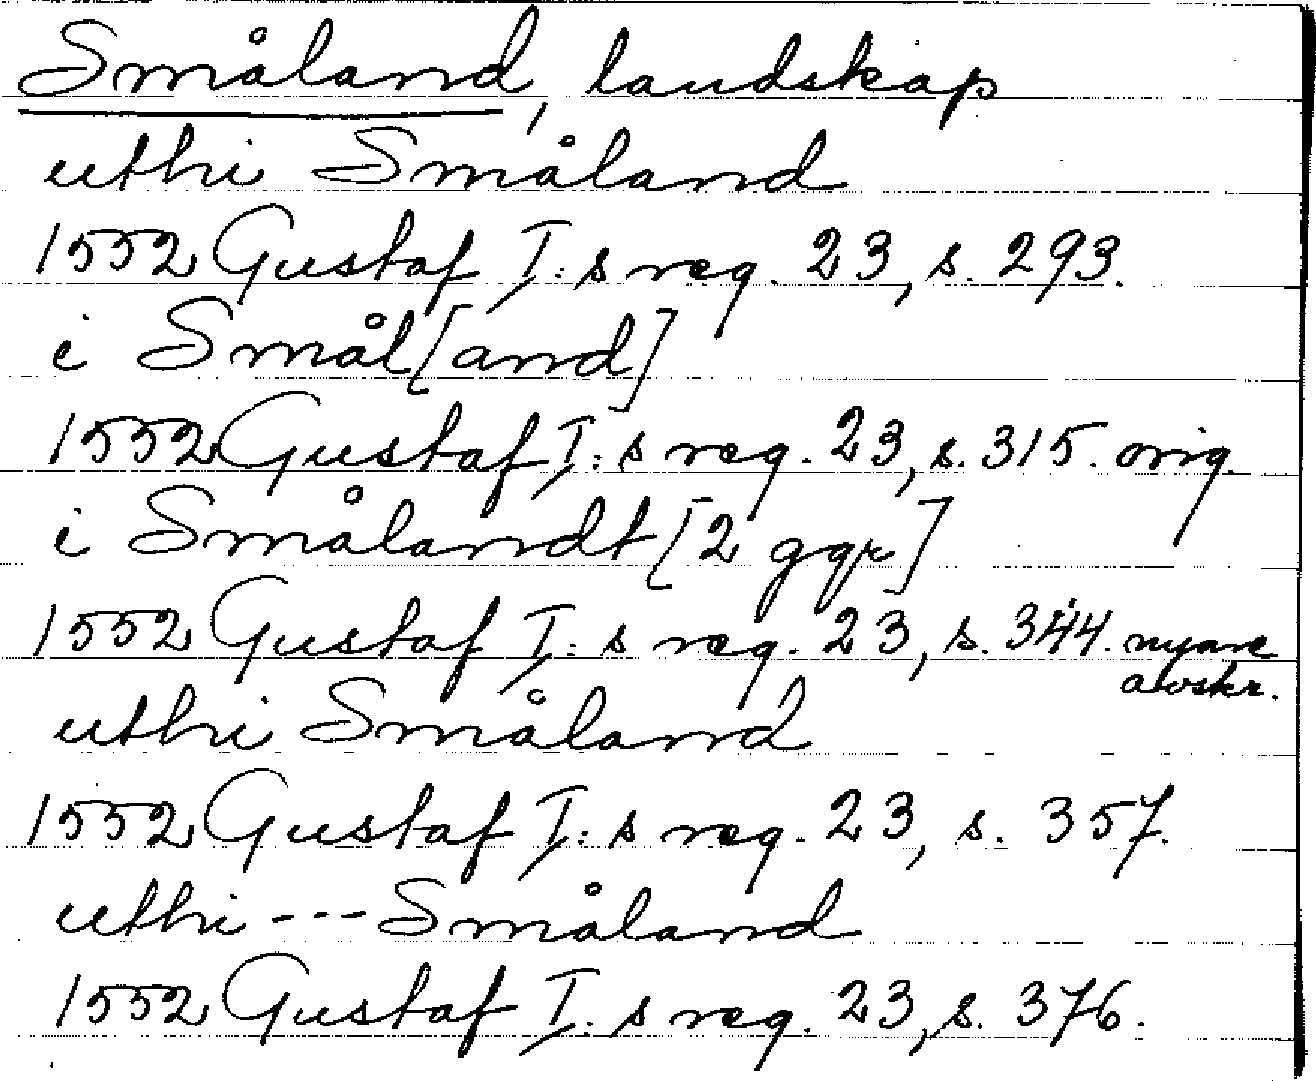 Småland, landskap
uthi Småland
1552 Gustaf I:s reg. 23, s. 293.
i Smål[and]
1552 Gustaf I:s reg. 23, s. 315. orig.
i Smålandt [2 ggr]
1552 Gustaf I:s reg. 23, s. 344. nyare
avskr.
uthi Småland
1552 Gustaf I:s reg. 23, s. 357.
uthi --- Småland
1552 Gustaf I:s reg. 23, s. 376.